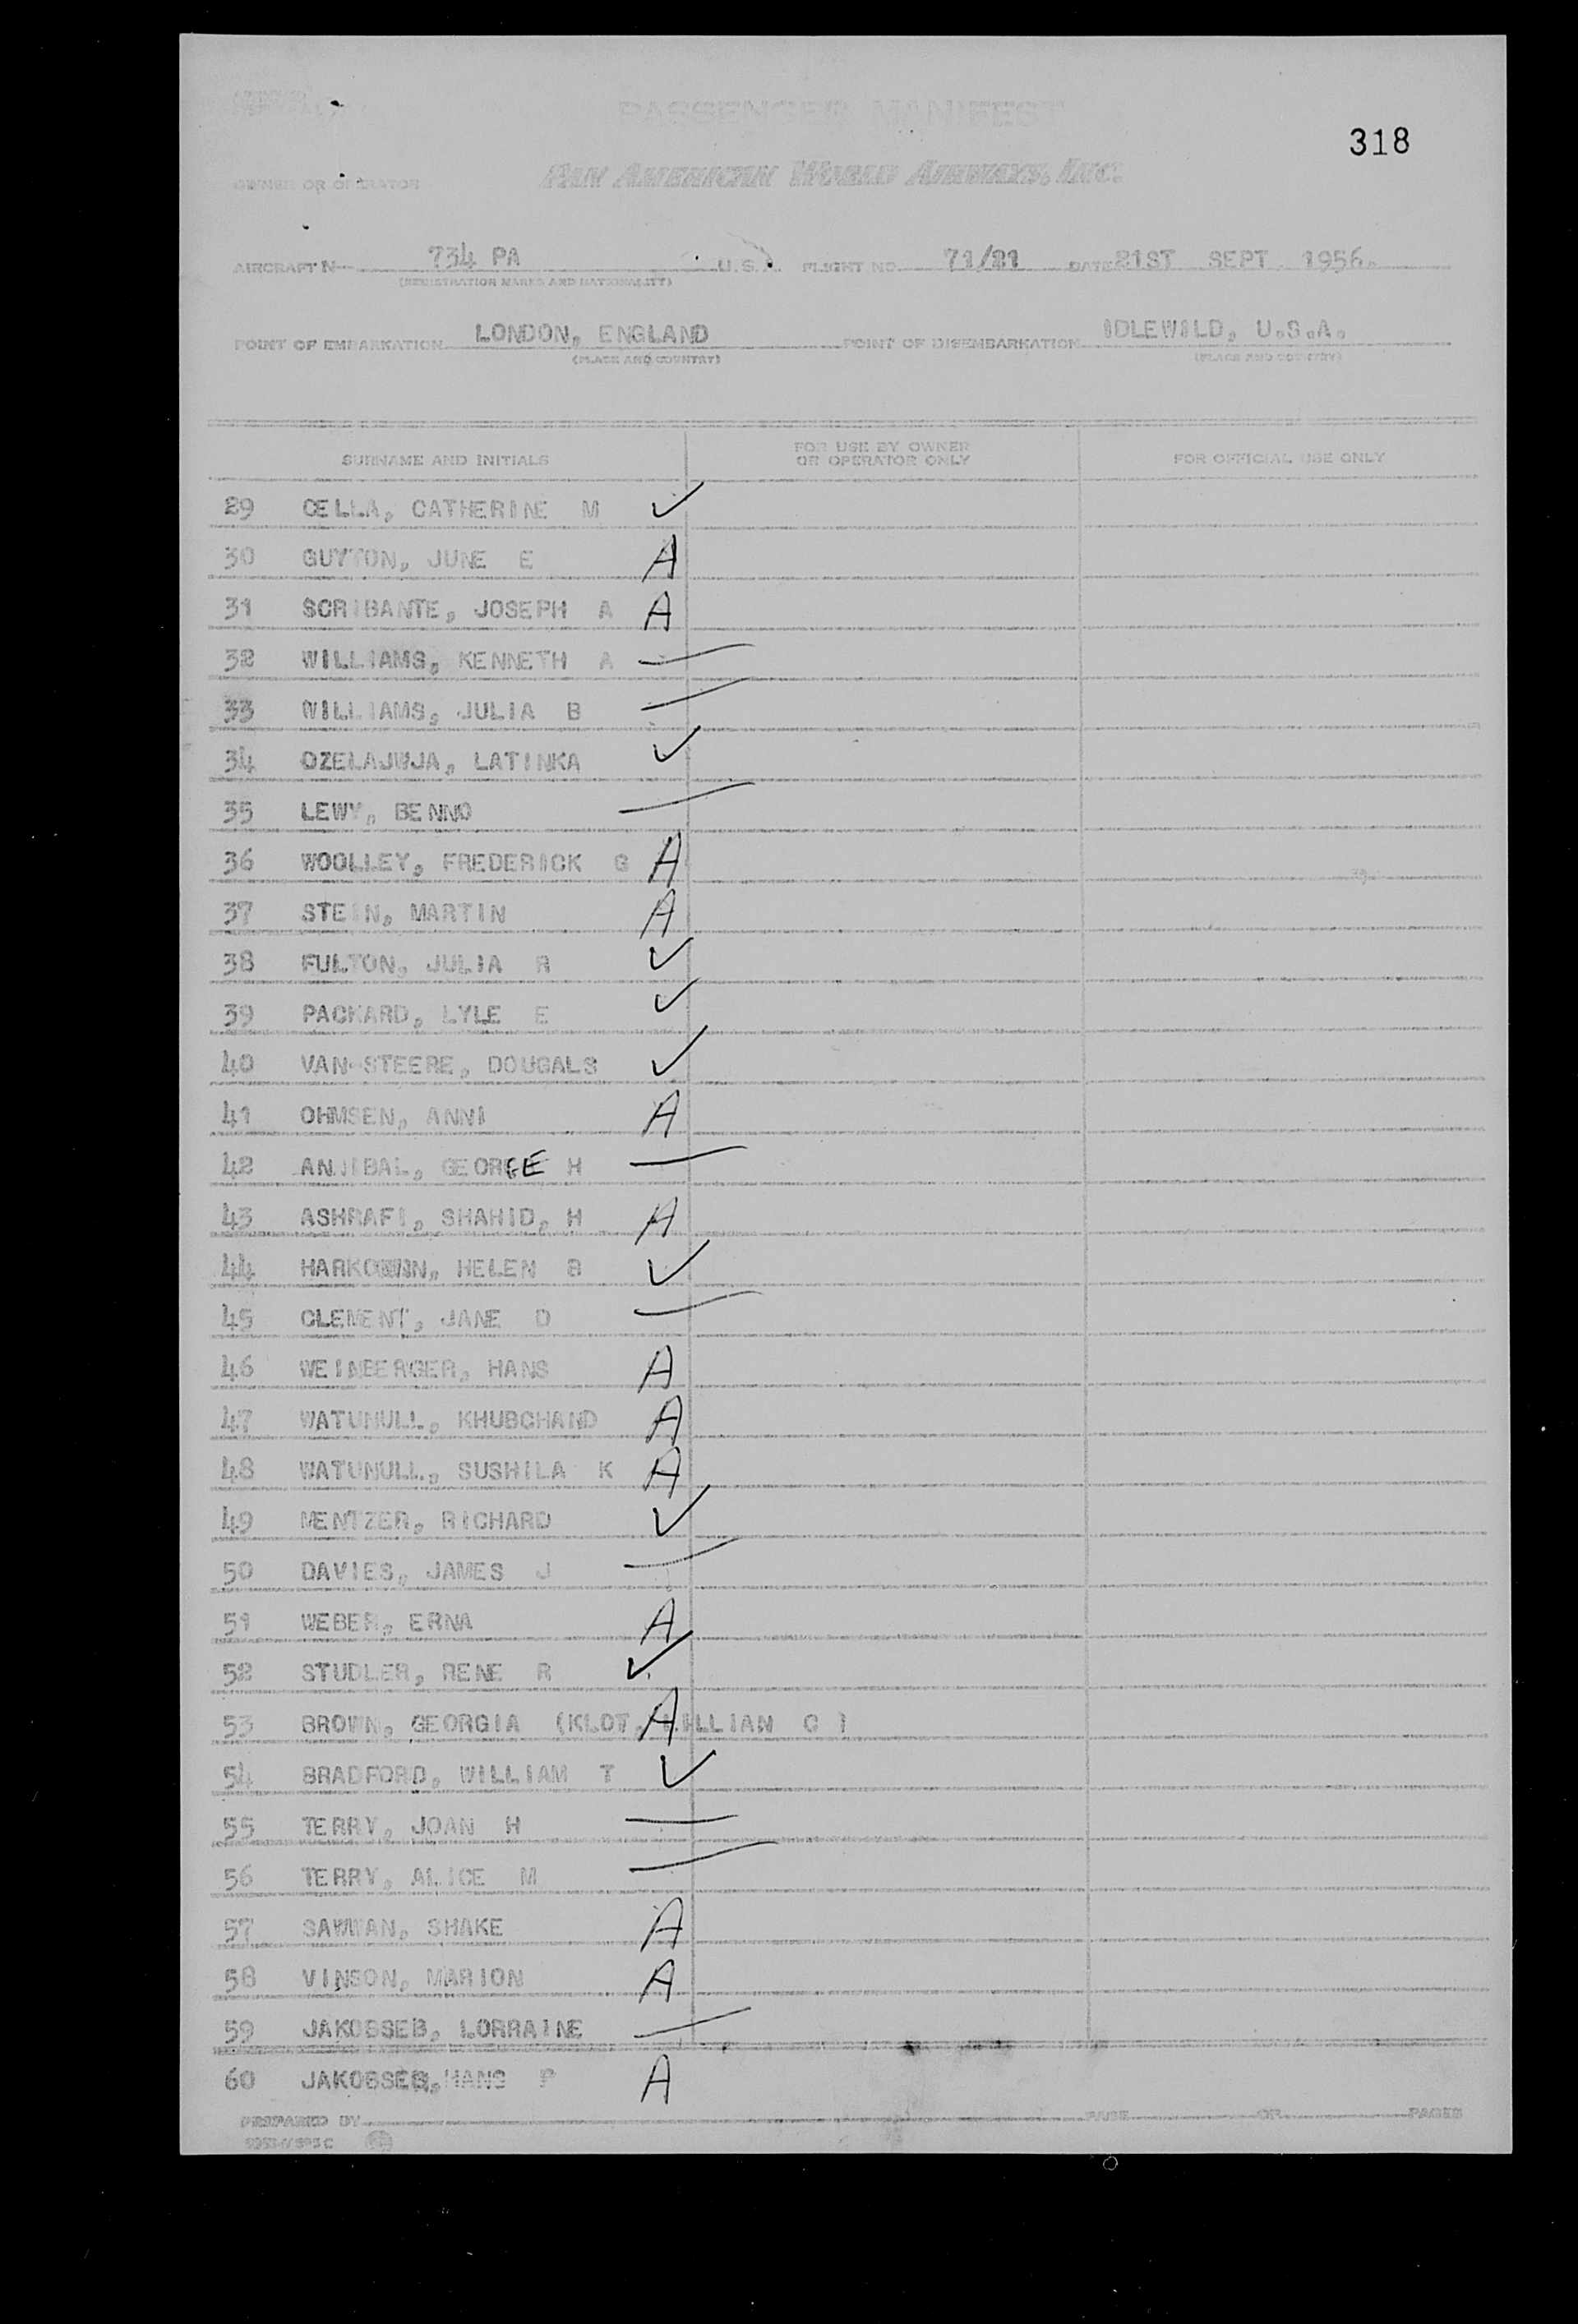 PASSENGER MANIFEST
318
OWNER OR OPERATOR PAN AMERICAN WORLD AIRWAYS, INC.
AIRCRAFT N 734 PA U.S. FLIGHT NO. 71/21 DATE 21ST SEPT 1956.
(REGISTRATION MARKS AND NATIONALITY)
POINT OF EMBARKATION LONDON, ENGLAND POINT OF DISEMBARKATION IDLEWILD, U.S.A.
(PLACE AND COUNTRY) (PLACE AND COUNTRY)
SURNAME AND INITIALS FOR USE BY OWNER OR OPERATOR ONLY FOR OFFICIAL USE ONLY
29 CELLA, CATHERINE M ✓
30 GUYTON, JUNE E A
31 SCRIBANTE, JOSEPH A A
32 WILLIAMS, KENNETH A
33 WILLIAMS, JULIA B
34 OZELAJWJA, LATINKA ✓
35 LEWY, BENNO
36 WOOLLEY, FREDERICK G A
37 STEIN, MARTIN A
38 FULTON, JULIA R ✓
39 PACKARD, LYLE E ✓
40 VAN-STEERE, DOUGALS ✓
41 OHMSEN, ANNI A
42 ANJIBAL, GEORGE H
43 ASHRAFI, SHAHID, H A
44 HELEN B ✓
45 CLEMENT, JANE D
46 WEINBERGER, HANS A
47 WATUMULL, KHUBCHAND A
48 WATUMULL, SUSHILA K A
49 MENTZER, RICHARD ✓
50 DAVIES, JAMES J
51 WEBER, ERNA A
52 STUDLER, RENE R ✓
53 BROWN, GEORGIA (KLOT, LILLIAN C ) A
54 BRADFORD, WILLIAM T ✓
55 TERRY, JOAN H
56 TERRY, ALICE M
57 SHAKE A
58 VINSON, MARION A
59 JAKOBSEB, LORRAINE
60 JAKOBSEB, HANS P A
PREPARED BY PAGE OF PAGES